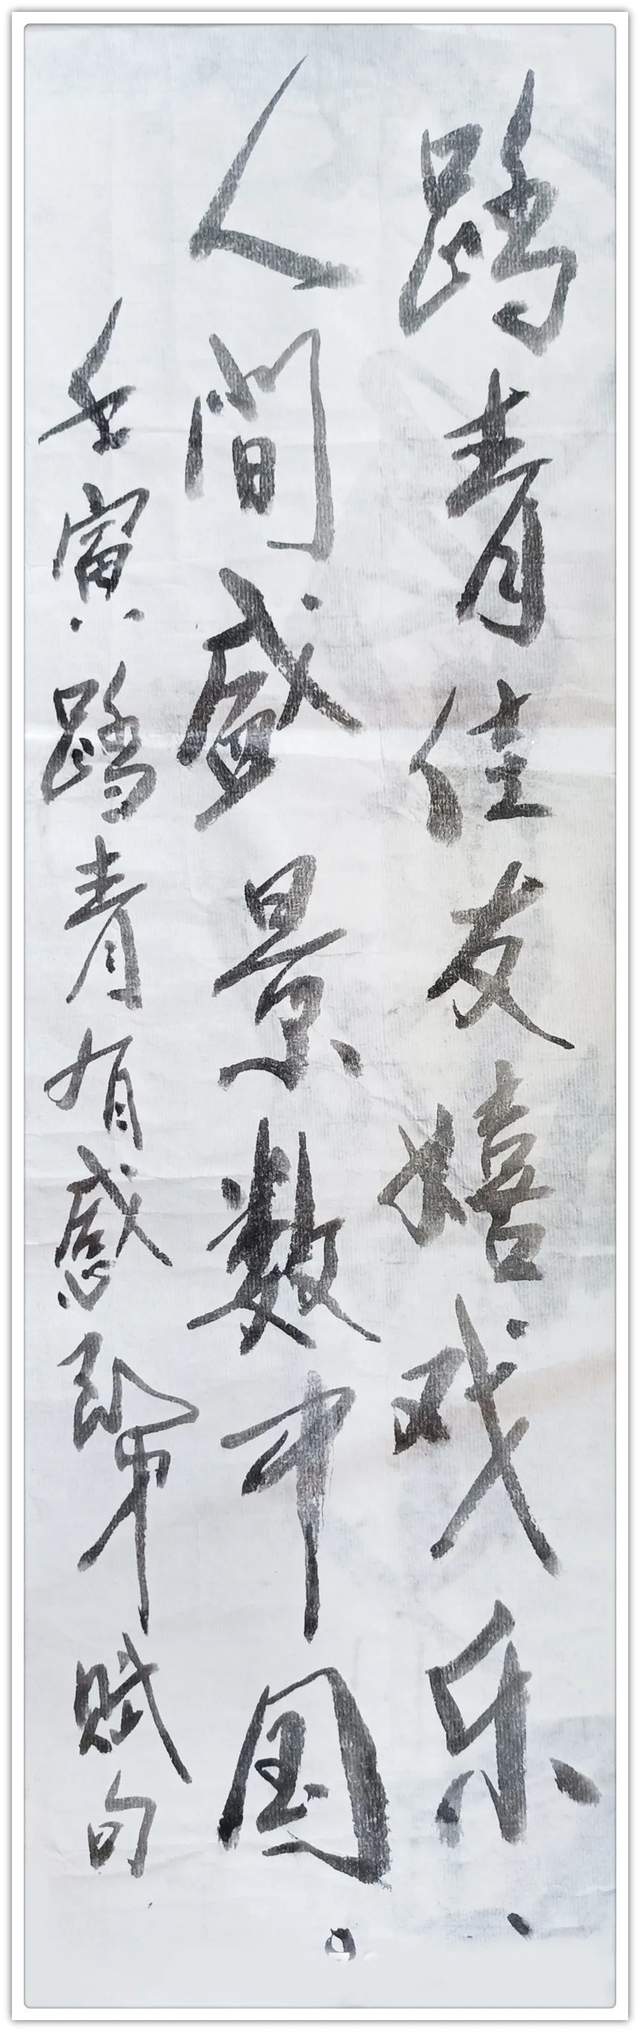 踏青佳友嬉戏乐、
人间盛景数中国。
壬寅踏青有感即第赋句